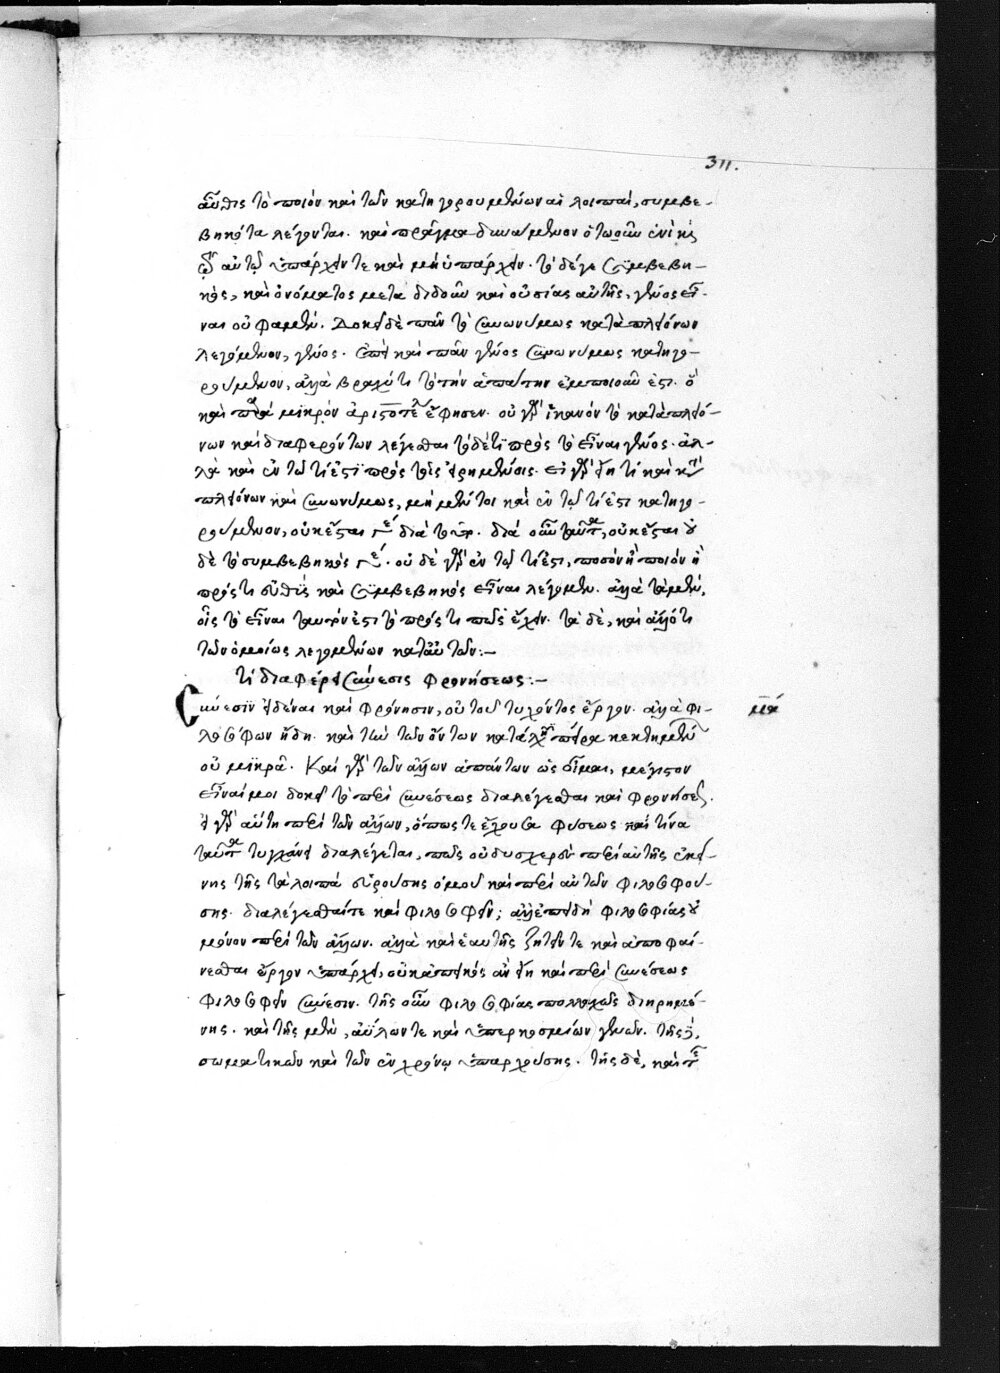 311.
αὖθις τὸ ποιόν καὶ τῶν κατηγορουμένων αἱ λοιπαί, συμβε-
βηκότα λέγονται. καὶ πρᾶγμα δυνάμενον ὁτωοῦν ἑνὶ καὶ
τῷ αὐτῷ ὑπάρχειν τε καὶ μὴ ὑπάρχειν. τὸ δέ γε συμβεβη-
κός, καὶ ὀνόματος μεταδιδοῦν καὶ οὐσίας αὐτῆς, γένος εἶ-
ναι οὐ φαμέν. Δοκεῖ δὲ πᾶν τὸ συνωνύμως κατὰ πλειόνων
λεγόμενον, γένος. ἐπεὶ καὶ πᾶν γένος συνωνύμως κατηγο-
ρούμενον, ἀλλὰ βραχύ τι τὸ τὴν ἀπάτην ἐμποιοῦν ἐστι. ὃ
καὶ παρὰ μικρὸν ἀριστοτέλης ἔφησεν. οὐ γὰρ ἱκανόν τὸ κατὰ πλειό-
νων καὶ διαφερόντων λέγεσθαι τὸ δέ τι πρὸς τὸ εἶναι γένος. ἀλ-
λὰ καὶ ἐν τῷ τί ἐστι πρὸς τὰς εἰρημένας. εἰ γὰρ εἴη τι καὶ κατὰ
πλειόνων καὶ συνωνύμως, μὴ μέντοι καὶ ἐν τῷ τί ἐστι κατηγο-
ρούμενον, οὐκ ἔσται γένος διὰ τοῦτο. διὰ οὖν ταῦτα, οὐκ ἔσται οὐ
δὲ τὸ συμβεβηκός γένος. οὐ δὲ γὰρ ἐν τῷ τί ἐστι, ποσόν ἢ ποιόν ἢ
πρός τι εὐθὺς καὶ συμβεβηκός εἶναι λέγομεν. ἀλλὰ τὰ μέν,
οἷς τὸ εἶναι ταυτόν ἐστι τὸ πρός τι πῶς ἔχειν. τὰ δὲ, καὶ ἄλλό τι
τῶν ὁμοίως λεγομένων κατ αὐτῶν:-
τί διαφέρει σύνεσις φρονήσεως:-
Σύνεσιν εἰδέναι καὶ φρόνησιν, οὐ τοῦ τυχόντος ἔργον. ἀλλὰ φι-
λοσόφων ἤδη. καὶ τὴν τῶν ὄντων κατάληψιν πέρα κεκτημένων
οὐ μικρᾶ. Καὶ γὰρ τῶν ἄλλων ἁπάντων ὡς οἶμαι, μέγιστον
εἶναί μοι δοκεῖ τὸ περὶ συνέσεως διαλέγεσθαι καὶ φρονήσεως.
εἰ γὰρ αὕτη περὶ τῶν ἄλλων, ὅπως τε ἔχουσα φύσεως καὶ τίνα
ταῦτα τυγχάνει διαλέγεται, πῶς οὐ δυσχερὸν περὶ αὐτῆς ἐκεί-
νης τῆς τὰ λοιπά εὑρούσης ὁμοῦ καὶ περὶ αὐτῶν φιλοσοφού-
σης. διαλέγεσθαί τε καὶ φιλοσοφεῖν; ἀλλ ἐπειδὴ φιλοσοφίας οὐ
μόνον περὶ τῶν ἄλλων. ἀλλὰ καὶ ἑαυτῆς ζητεῖν τε καὶ ἀποφαί-
νεσθαι ἔργον ὑπάρχει, οὐκ ἀπεικός ἂν εἴη καὶ περὶ συνέσεως
φιλοσοφεῖν σύνεσιν. τῆς οὖν φιλοσοφίας πολλαχῶς διῃρημέ-
νης. καὶ τῆς μὲν, ἀΰλων τε καὶ ὑπερκοσμίων γενῶν. τῆς δὲ,
σωματικῶν καὶ τῶν ἐν χρόνῳ ὑπαρχούσης. τῆς δὲ, καὶ
μα